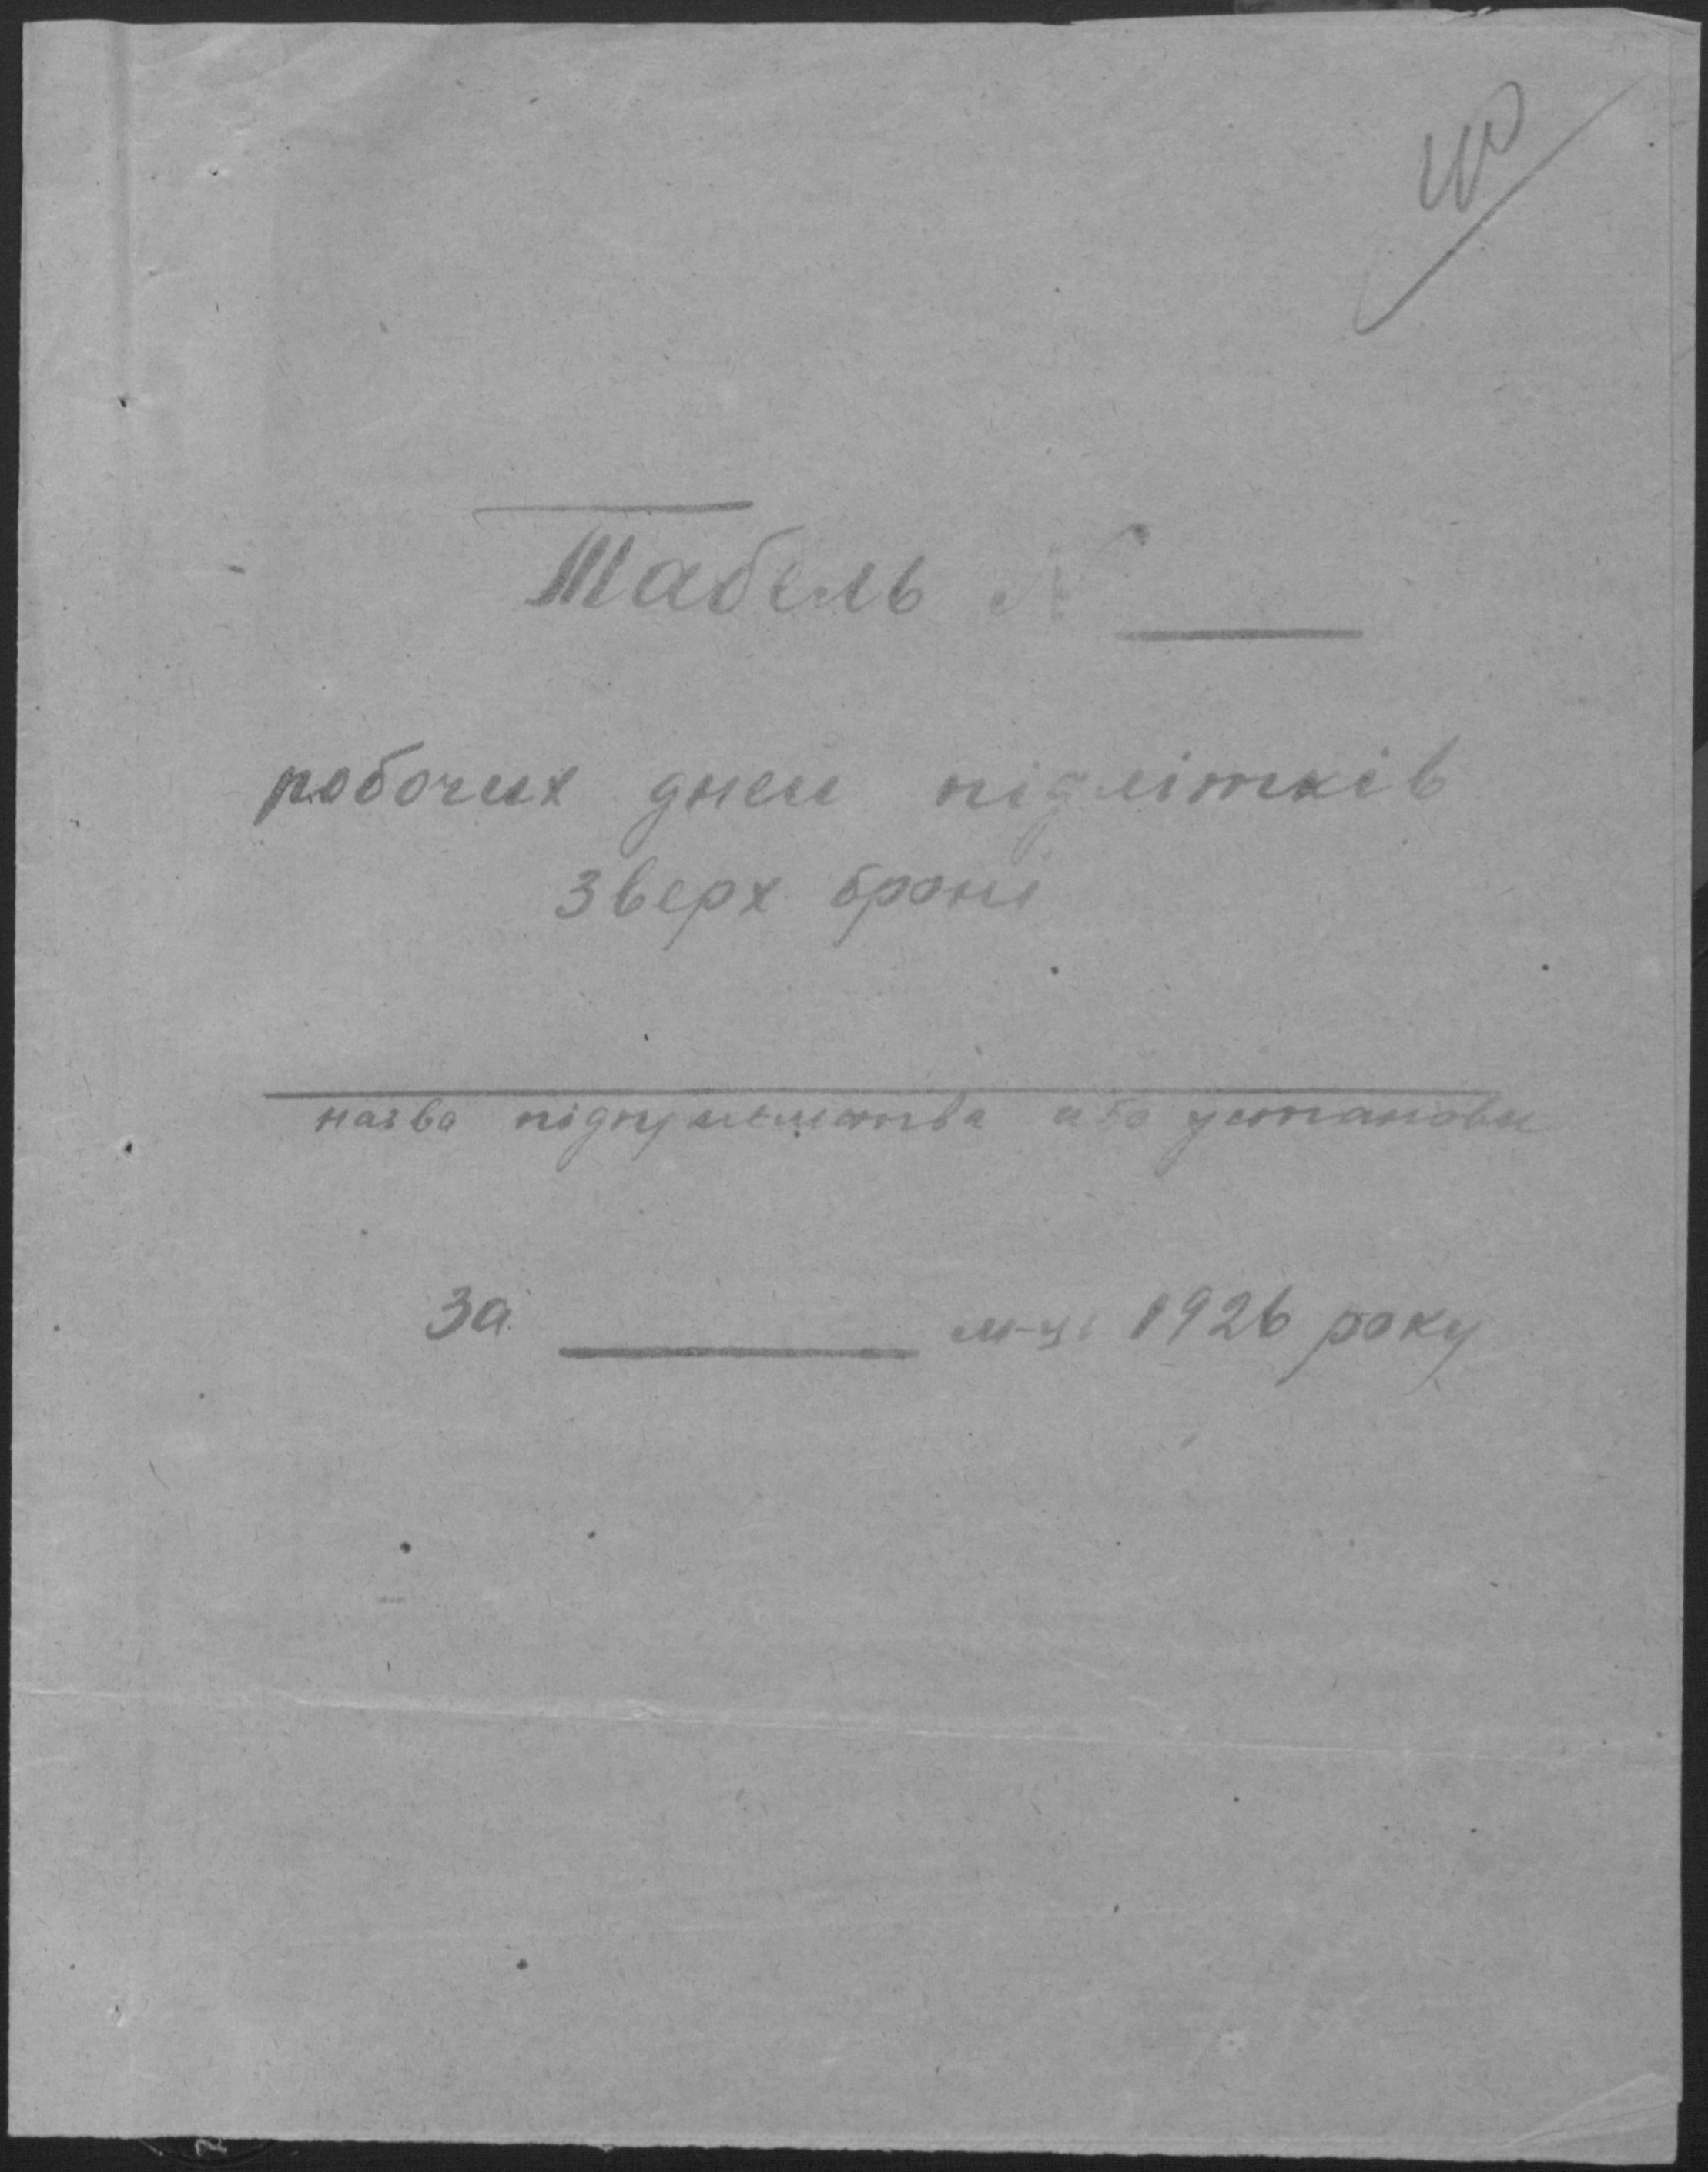 Табель N ____
робочих днеи підлітків
зверх броні
назва підприемства або установи
За ____ м-ць 1926 року